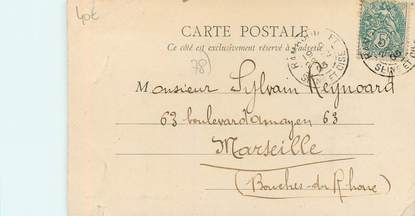 40€
CARTE POSTALE
Ce côté est exclusivement réservé à l'adresse
78)
5
SEINE ET OISE
SEINE ET OISE
Monsieur Sylvain Reynoard
63 boulevard amayen 63
Marseille
(Bouches-du-Rhone)